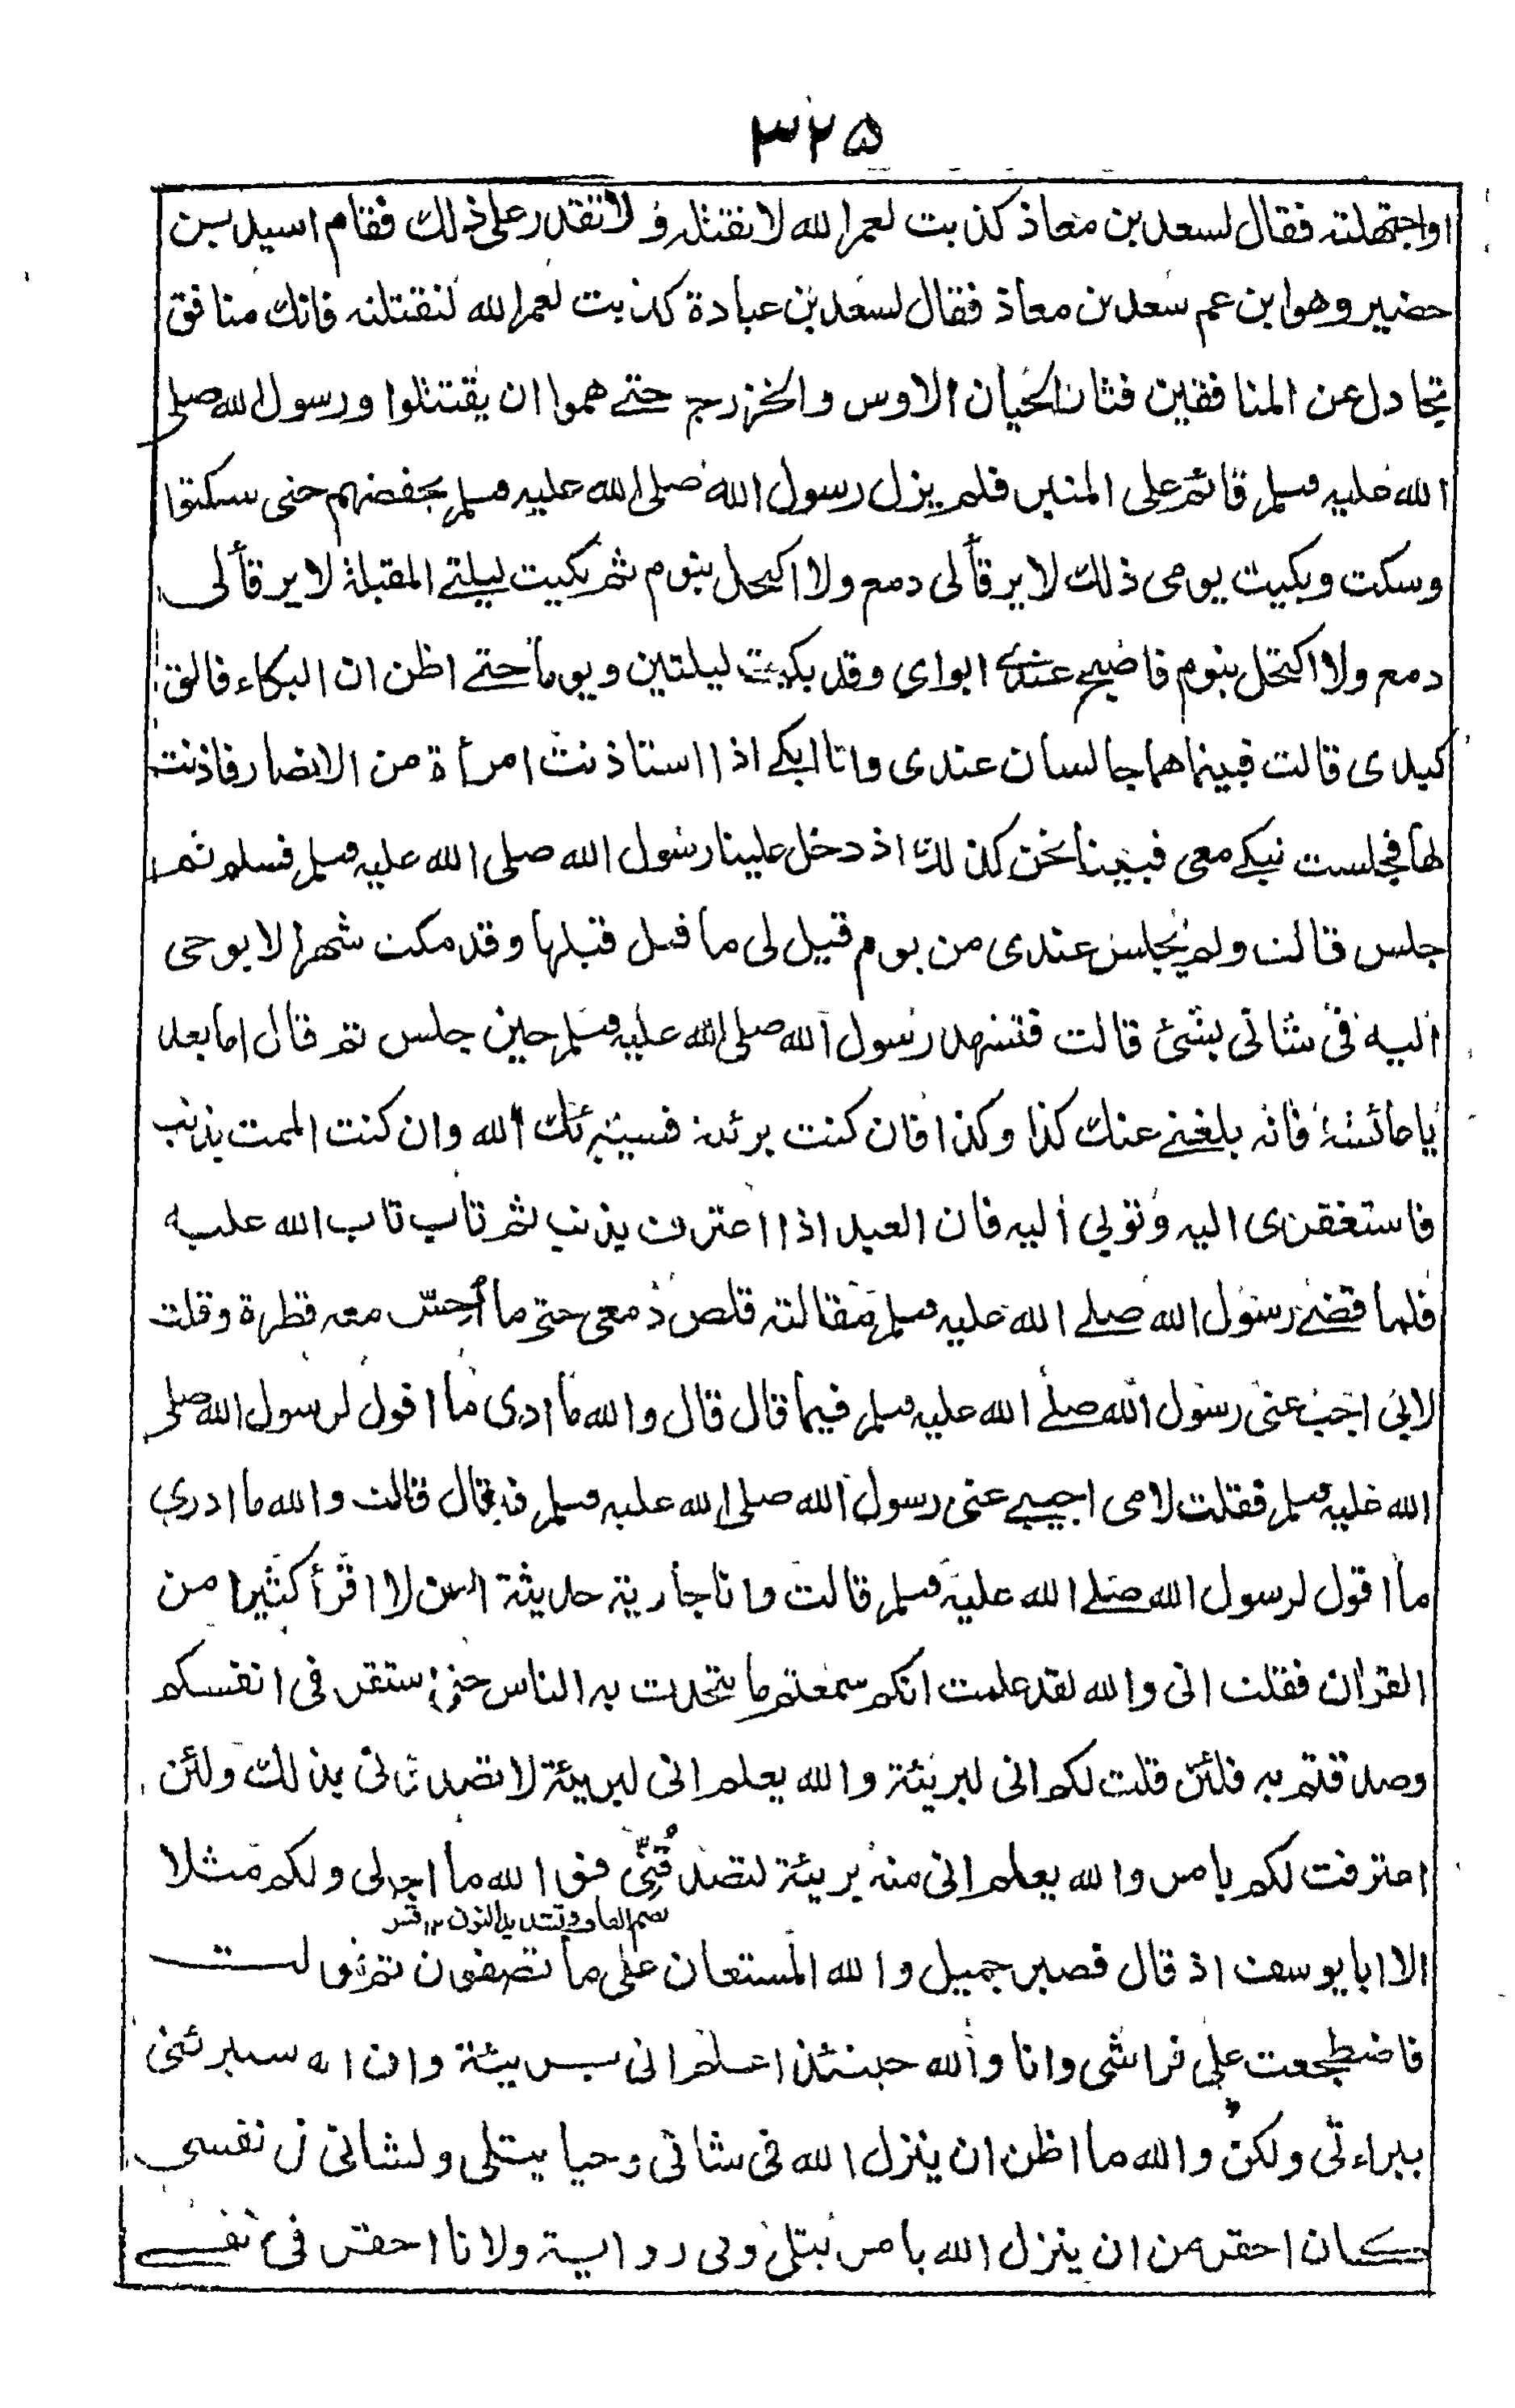 ٣٢٥
او اجتهلته فقال لسعد بن معاذ كذبت لعمر الله لا نقتله ولا تقدر على ذلك فقام اسيد بن
حضير وهو ابن عم سعد بن معاذ فقال لسعد بن عبادة كذبت لعمر الله لنقتلنه فانك منافق
تجادل عن المنافقين فثار الحيان الاوس والخزرج حتے هموا ان يقتتلوا ورسول الله صلى
الله عليه وسلم قائم على المنبر فلم يزل رسول الله صلى الله عليه وسلم يخفضهم حتى سكتوا
وسكت وبكيت يومى ذلك لا يرقأ لى دمع ولا اكتحل بنوم ثم بكيت ليلتے المقبلة لا يرقأ لى
دمع ولا اكتحل بنوم فاصبح عندے ابواى وقد بكيت ليلتين ويوما حتے اظن ان البكاء فالق
كبدى قالت فبينما هما جالسان عندى وانا ابكے اذا استاذنت امرأة من الانصار فاذنت
لها فجلست تبكے معى فبينا نحن كذلك اذ دخل علينا رسول الله صلى الله عليه وسلم فسلم ثم
جلس قالت ولم يجلس عندى من يوم قيل لى ما قيل قبلها وقد مكث شهرا لا يوحى
اليه فى شانى بشئ قالت فتشهد رسول الله صلى الله عليه وسلم حين جلس ثم قال اما بعد
يا عائشة فانه بلغنے عنك كذا وكذا فان كنت برئة فسيبرئك الله وان كنت الممت بذنب
فاستغفرى اليه وتوبى اليه فان العبد اذا اعترف بذنب ثم تاب تاب الله عليه
فلما قضے رسول الله صلے الله عليه وسلم مقالته قلص دمعى حتى ما أحس معه قطرة وقلت
لابى اجب عنى رسول الله صلے الله عليه وسلم فيما قال قال والله ما ادرى ما اقول لرسول الله صلى
الله عليه وسلم فقلت لامى اجيبے عنى رسول الله صلى الله عليه وسلم فيما قال قالت والله ما ادرى
ما اقول لرسول الله صلے الله عليه وسلم قالت وانا جارية حديثة السن لا اقرأ كثيرا من
القرآن فقلت انى والله لقد علمت انكم سمعتم ما يتحدث به الناس حتى استقر فى انفسكم
وصدقتم به فلئن قلت لكم انى لبريئة والله يعلم انى لبريئة لا تصدقانى بذلك ولئن
اعترفت لكم بامر والله يعلم انى منه بريئة لتصدقُنِّى فو الله ما اجد لى ولكم مثلا
بضم القاف وتشديد النون ١٢ قس
الا ابا يوسف اذ قال فصبر جميل والله المستعان على ما تصفون ثم تحولت
فاضطجعت على فراشى وانا والله حينئذ اعلم انى بريئة وان الله سيبرئنى
ببراءتى ولكن والله ما اظن ان ينزل الله فى شانى وحيا يتلى ولشانى فى نفسى
كان احقر من ان ينزل الله بامر يتلى وفى رواية ولانا احقر فى نفسے